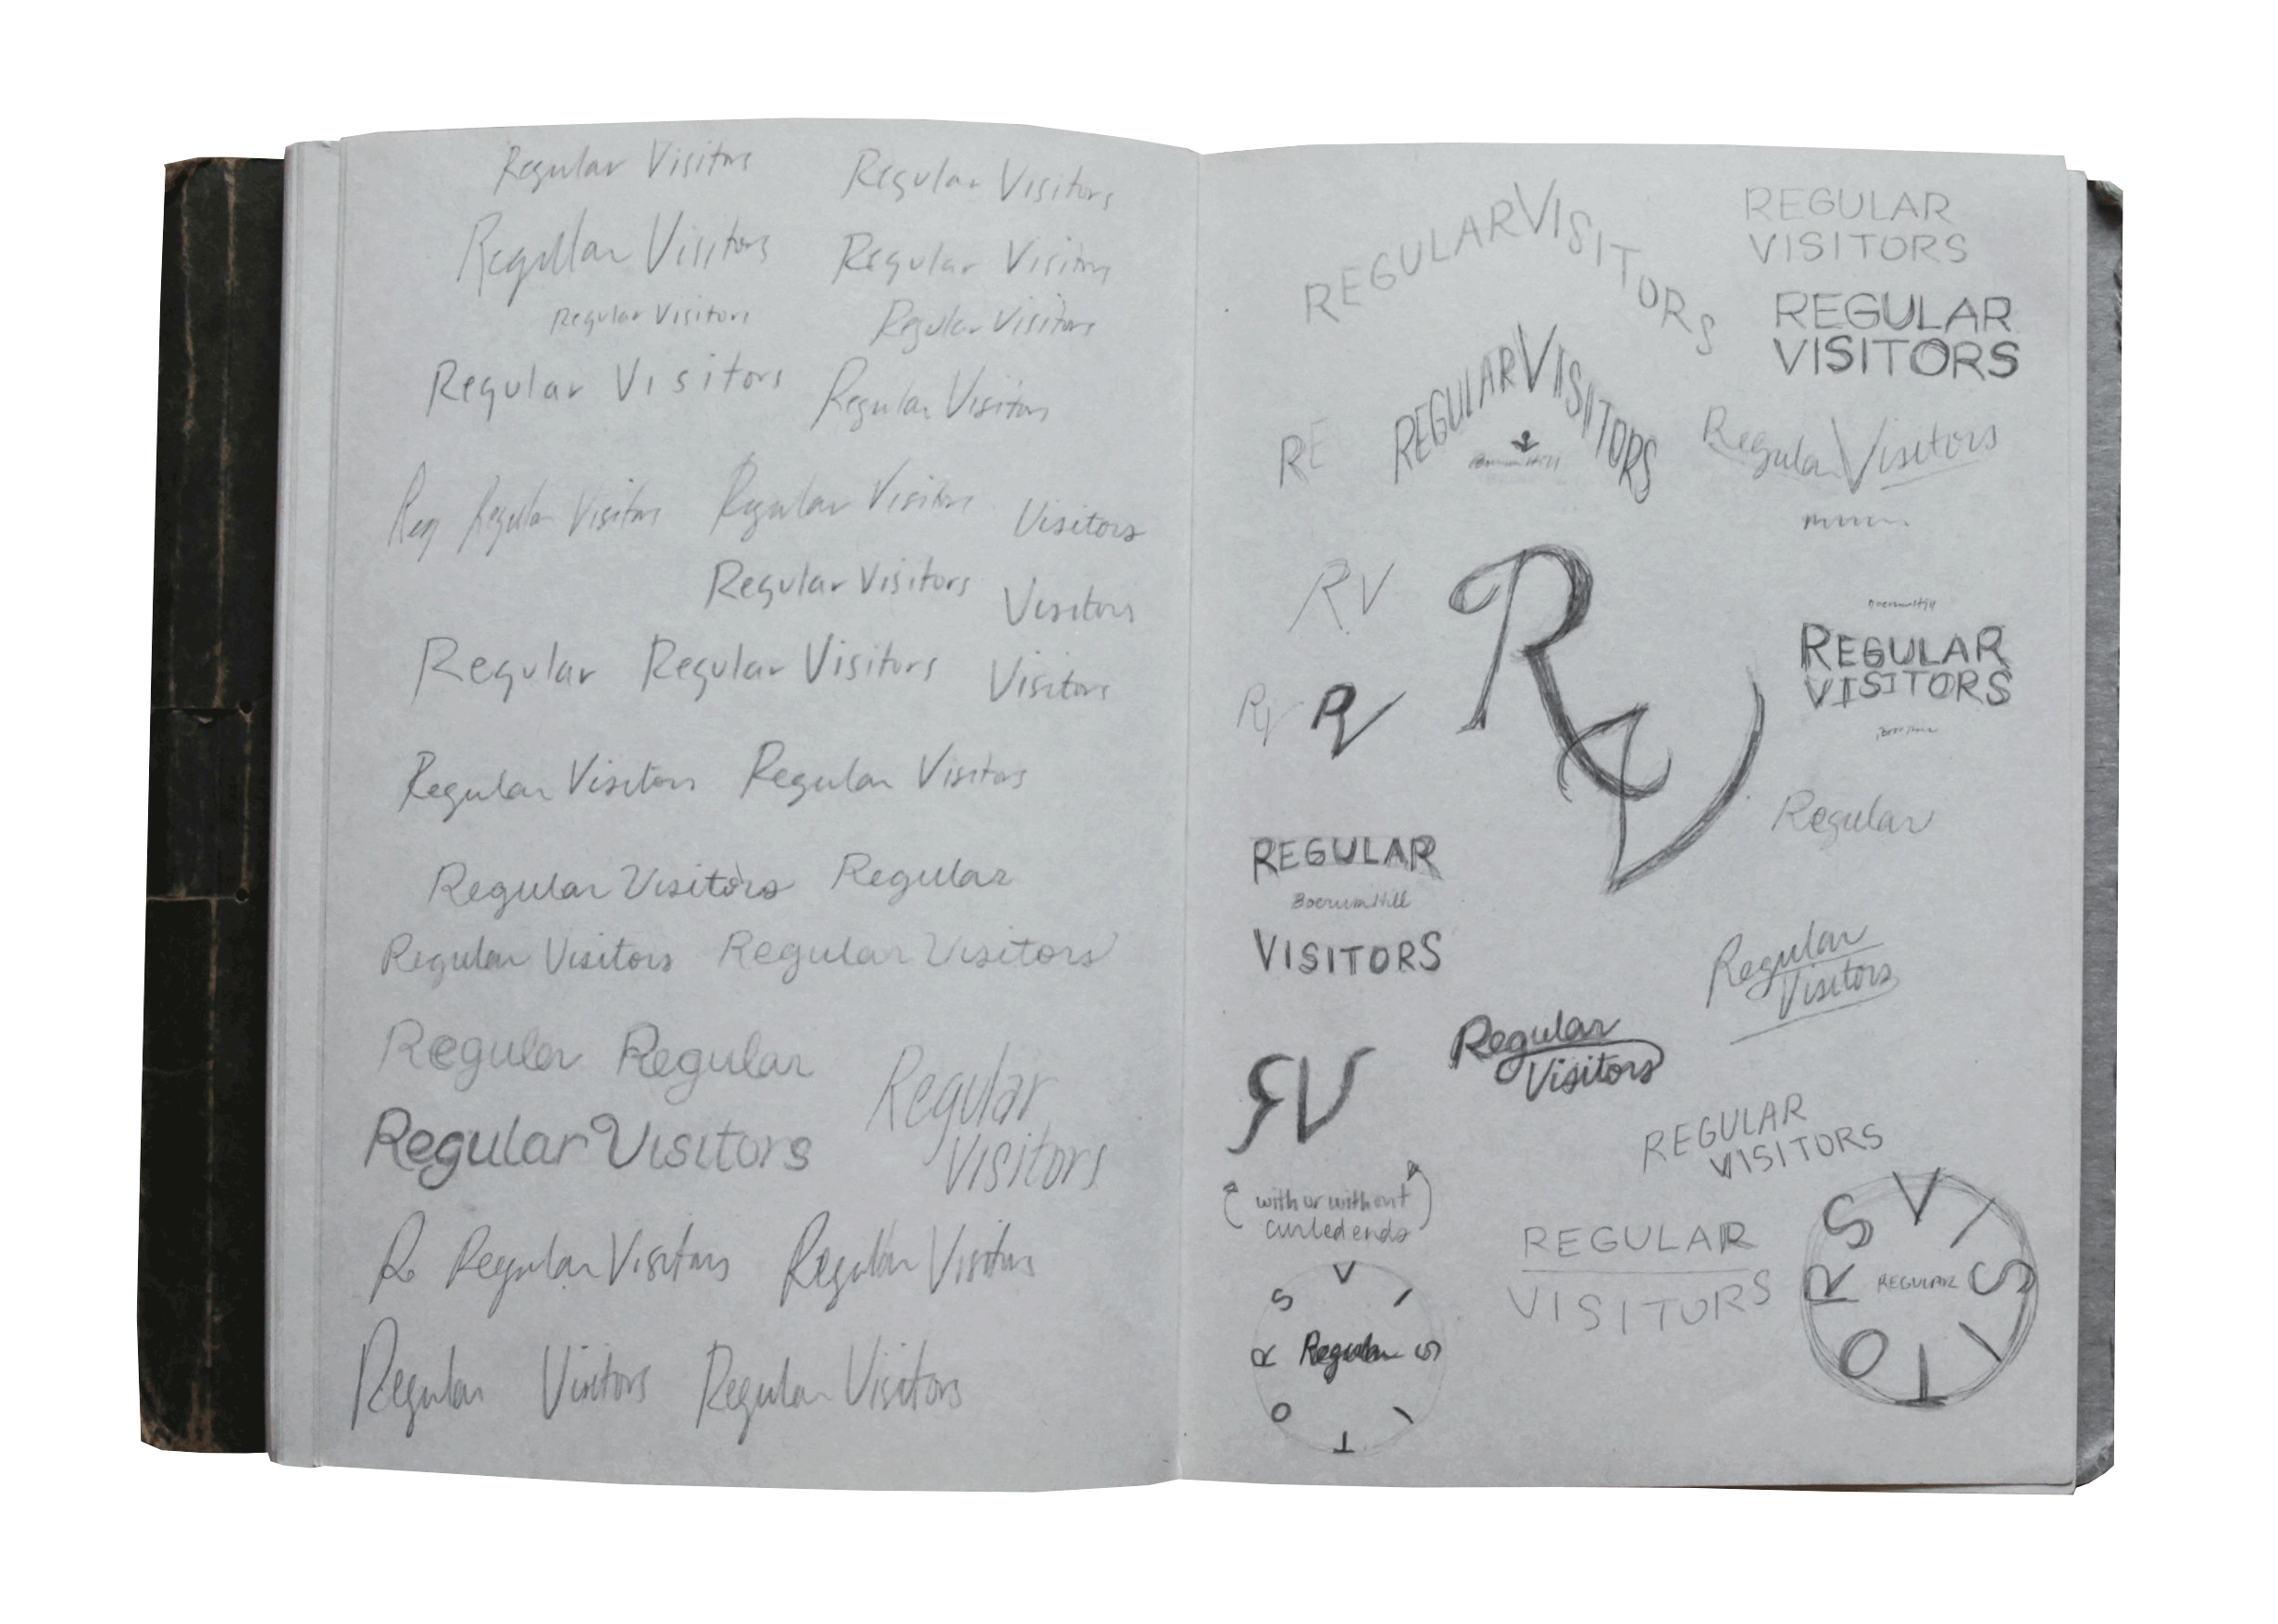 Regular Visitors
Regular Visitors
Regular Visitors
Regular Visitors
Regular Visitors
Regular Visitors
Regular Visitors
Regular Visitors
Reg Regular Visitors
Regular Visitors
Visitors
Regular Visitors
Visitors
Regular
Regular Visitors
Visitors
Regular Visitors
Regular Visitors
Regular Visitors
Regular
Regular Visitors
Regular Visitors
Regular
Regular
Regular Visitors
Regular
Visitors
R
Regular Visitors
Regular Visitors
Regular
Visitors
Regular Visitors
REGULAR VISITORS
REGULAR
VISITORS
REGULAR
VISITORS
RE
REGULAR VISITORS
Boerum Hill
Regular Visitors
RV
RV
Boerum Hill
REGULAR
VISITORS
RV
RV
Regular
REGULAR
Boerum Hill
VISITORS
Regular
Visitors
Regular
Visitors
RV
with or without
curled ends
REGULAR
VISITORS
REGULAR
VISITORS
VISITORS
Regular
VISITORS
REGULAR